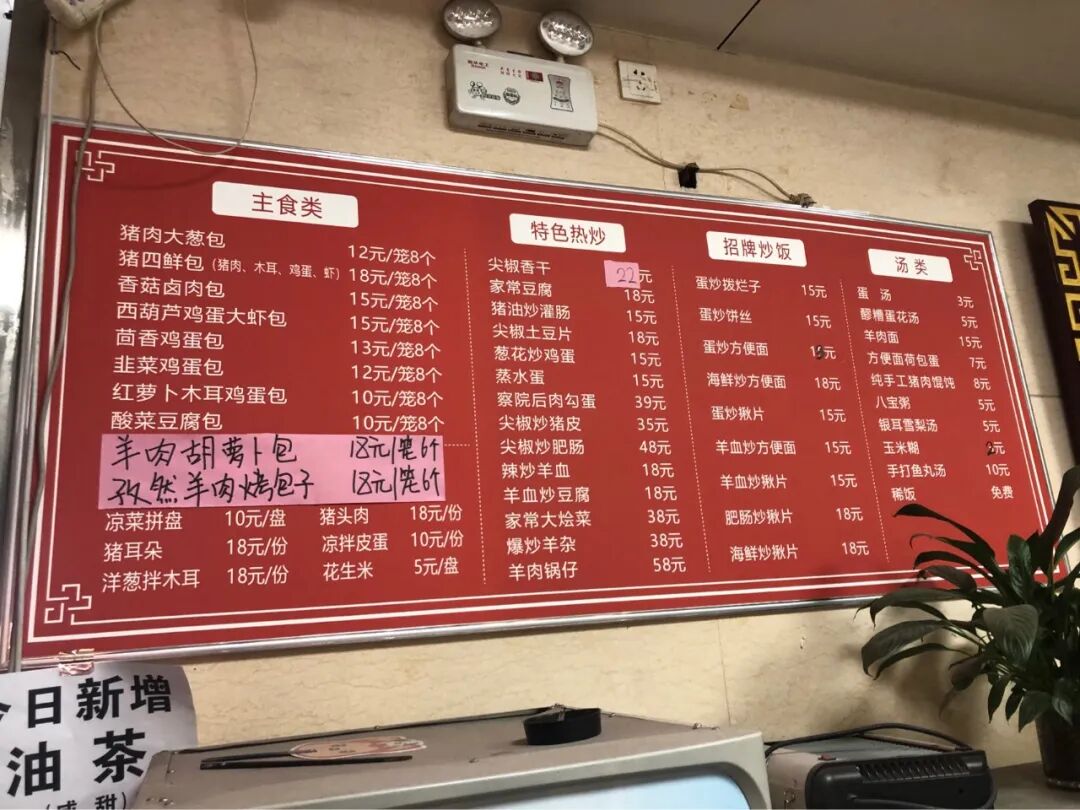 主食类
猪肉大葱包 12元/笼8个
猪四鲜包(猪肉、木耳、鸡蛋、虾) 18元/笼8个
香菇卤肉包 15元/笼8个
西葫芦鸡蛋大虾包 15元/笼8个
茴香鸡蛋包 13元/笼8个
韭菜鸡蛋包 12元/笼8个
红萝卜木耳鸡蛋包 10元/笼8个
酸菜豆腐包 10元/笼8个
羊肉胡萝卜包 18元/笼6个
孜然羊肉烤包子 18元/笼6个
凉菜拼盘 10元/盘 猪头肉 18元/份
猪耳朵 18元/份 凉拌皮蛋 10元/份
洋葱拌木耳 18元/份 花生米 5元/盘
特色热炒
尖椒香干 22元
家常豆腐 18元
猪油炒灌肠 15元
尖椒土豆片 18元
葱花炒鸡蛋 15元
蒸水蛋 15元
察院后肉勾蛋 39元
尖椒炒猪皮 35元
尖椒炒肥肠 48元
辣炒羊血 18元
羊血炒豆腐 18元
家常大烩菜 38元
爆炒羊杂 38元
羊肉锅仔 58元
招牌炒饭
蛋炒拨烂子 15元
蛋炒饼丝 15元
蛋炒方便面
海鲜炒方便面 18元
蛋炒揪片 15元
羊血炒方便面 15元
羊血炒揪片 15元
肥肠炒揪片 18元
海鲜炒揪片 18元
汤类
蛋 汤 3元
醪糟蛋花汤 5元
羊肉面 15元
方便面荷包蛋 7元
纯手工猪肉馄饨 8元
八宝粥 5元
银耳雪梨汤 5元
玉米糊
手打鱼丸汤 10元
稀饭 免费
今日新增
油茶